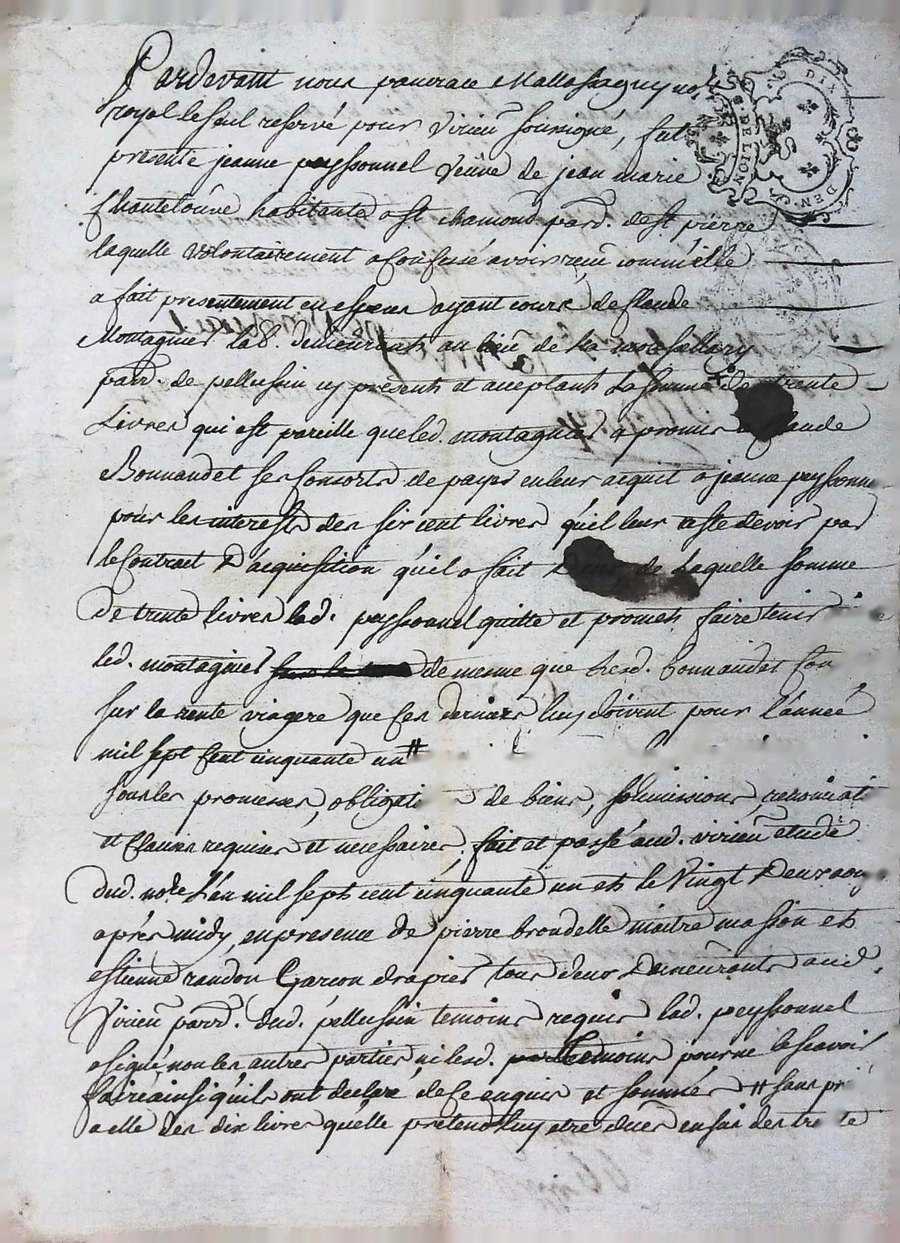 Pardevant nous pancrace Mallassagny no.re
royal le seul reservé pour Virieu soussigné, fut
presente jeanne peyssonnel veuve de jean marie
Chantelouve habitante a st. chamond parr. de st. pierre
laquelle volontairement a confessé avoir reçu comme elle
a fait presentement en especes ayant cours, de Claude
Montagnier lab. demeurant au lieu de la
parr. de pellussin icy present et acceptant la somme de trente
Livres qui est pareille que led. montagnier a promis a Claude
Bonnand et ses Consorts de payer en leur acquit a jeanne peyssonne
pour les interests des six cent livres qu'il leur reste devoir par
le Contract D'acquisition qu'il a fait D'eux, de Laquelle somme
de trente livres lad. peyssonnel quitte et promet faire tenir
led. montagnier de mesme que lesd. bonnand et Con
sur la rente viagere que ces derniers luy doivent pour l'année
mil sept Cent cinquante un #
sous les promesses, obligati de biens, soumissions, renonciati
et Clauses requises et necessaires, fait et passé aud. virieu etude
dud. no.re L'an mil sept cent cinquante un et le Vingt Deux aou
après midy, en presence de pierre brondelle maitre masson et
estienne randon Garçon drapier tous deux Demeurants aud.
Virieu parr. dud. pellussin temoins requis lad. peyssonnel
a signé non les autres parties ni lesd. temoins pour ne le scavoir
faire ainsi qu'ils ont declaré de ce enquis et sommés # sans pr
a elle des dix livres qu'elle pretend luy etre dues en sus des trente
DIX
DEN.
G. DE LION